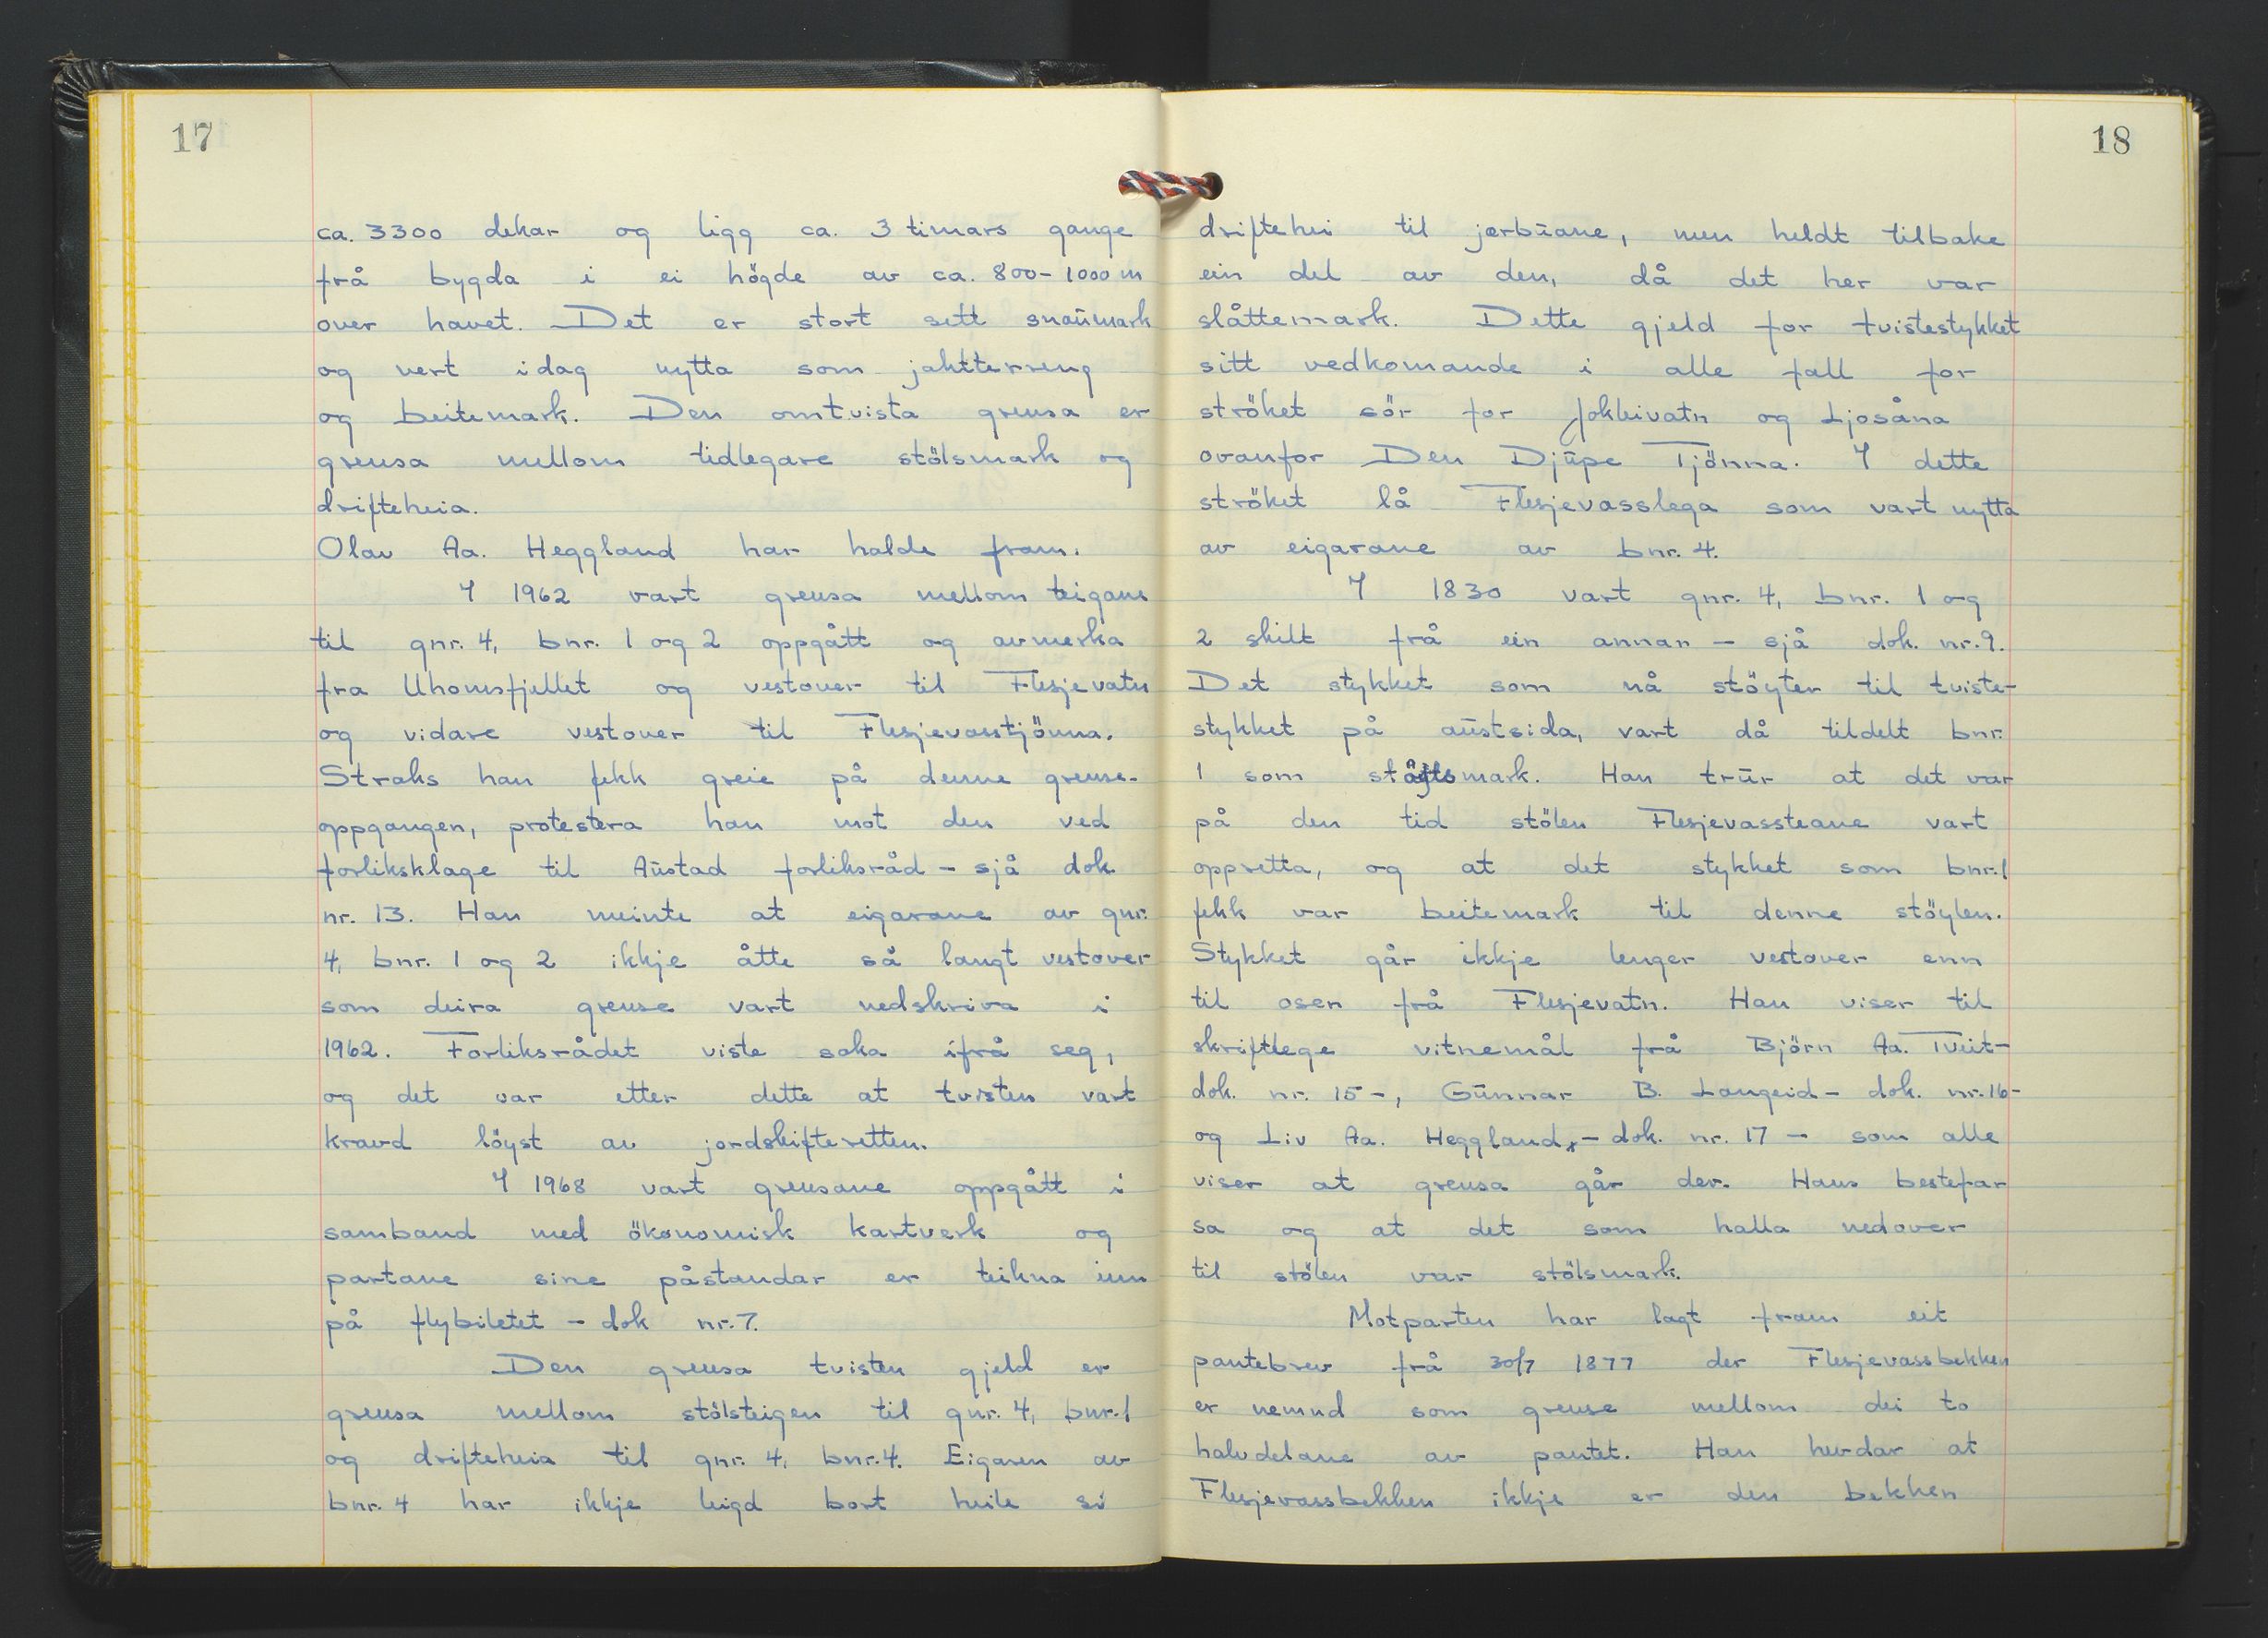 17
ca. 3300 dekar og ligg ca. 3 timars gange
frå bygda i ei högde av ca. 800-1000 m
over havet. Det er stort sett snaumark
og vert idag nytta som jaktterreng
og beitemark. Den omtvista grensa er
grensa mellom tidlegare stölsmark og
drifteheia.
Olav Aa. Heggland har halde fram.
I 1962 vart grensa mellom teigane
til gnr. 4, bnr. 1 og 2 oppgått og avmerka
fra Uhomsfjellet og vestover til Flesjevatn
og vidare vestover til Flesjevasstjönna.
Straks han fekk greie på denne grense-
oppgangen, protestera han mot den ved
forliksklage til Austad forliksråd - sjå dok
nr. 13. Han meinte at eigarane av gnr.
4, bnr. 1 og 2 ikkje åtte så langt vestover
som deira grense vart nedskriva i
1962. Forliksrådet viste saka ifrå seg,
og det var etter dette at tvisten vart
kravd löyst av jordskifteretten.
I 1968 vart grensane oppgått i
samband med ökonomisk kartverk og
partane sine påstandar er teikna inn
på flybiletet - dok nr. 7.
Den grensa tvisten gjeld er
grensa mellom stölsteigen til gnr. 4, bnr. 1
og drifteheia til gnr. 4, bnr. 4. Eigaren av
bnr. 4 har ikkje leigd bort heile si
18
driftehei til jærbuane, men heldt tilbake
ein del av den, då det her var
slåttemark. Dette gjeld for tvistestykket
sitt vedkomande i alle fall for
ströket sör for Jokleivatn og Ljosåna
ovanfor Den Djupe Tjönna. I dette
ströket lå Flesjevasslega som vart nytta
av eigarane av bnr. 4.
I 1830 vart gnr. 4, bnr. 1 og
2 skilt frå ein annan - sjå dok. nr. 9.
Det stykket som nå stöyter til tviste-
stykket på austsida, vart då tildelt bnr.
1 som mark. Han trur at det var
på den tid stölen Flesjevassteane vart
oppretta, og at det stykket som bnr. 1
fekk var beitemark til denne stöylen.
Stykket går ikkje lenger vestover enn
til osen frå Flesjevatn. Han viser til
skriftlege vitnemål frå Björn Aa. Tveit-
dok. nr. 15-, Gunnar B. Langeid - dok. nr. 16-
og Liv Aa. Heggland - dok. nr. 17 - som alle
viser at grensa går der. Hans bestefar
sa og at det som halla nedover
til stölen var stölsmark.
Motparten har lagt fram eit
pantebrev frå 30/7 1877 der Flesjevassbekken
er nemnd som grense mellom dei to
halvdelane av pantet. Han hevdar at
Flesjevassbekken ikkje er den bekken